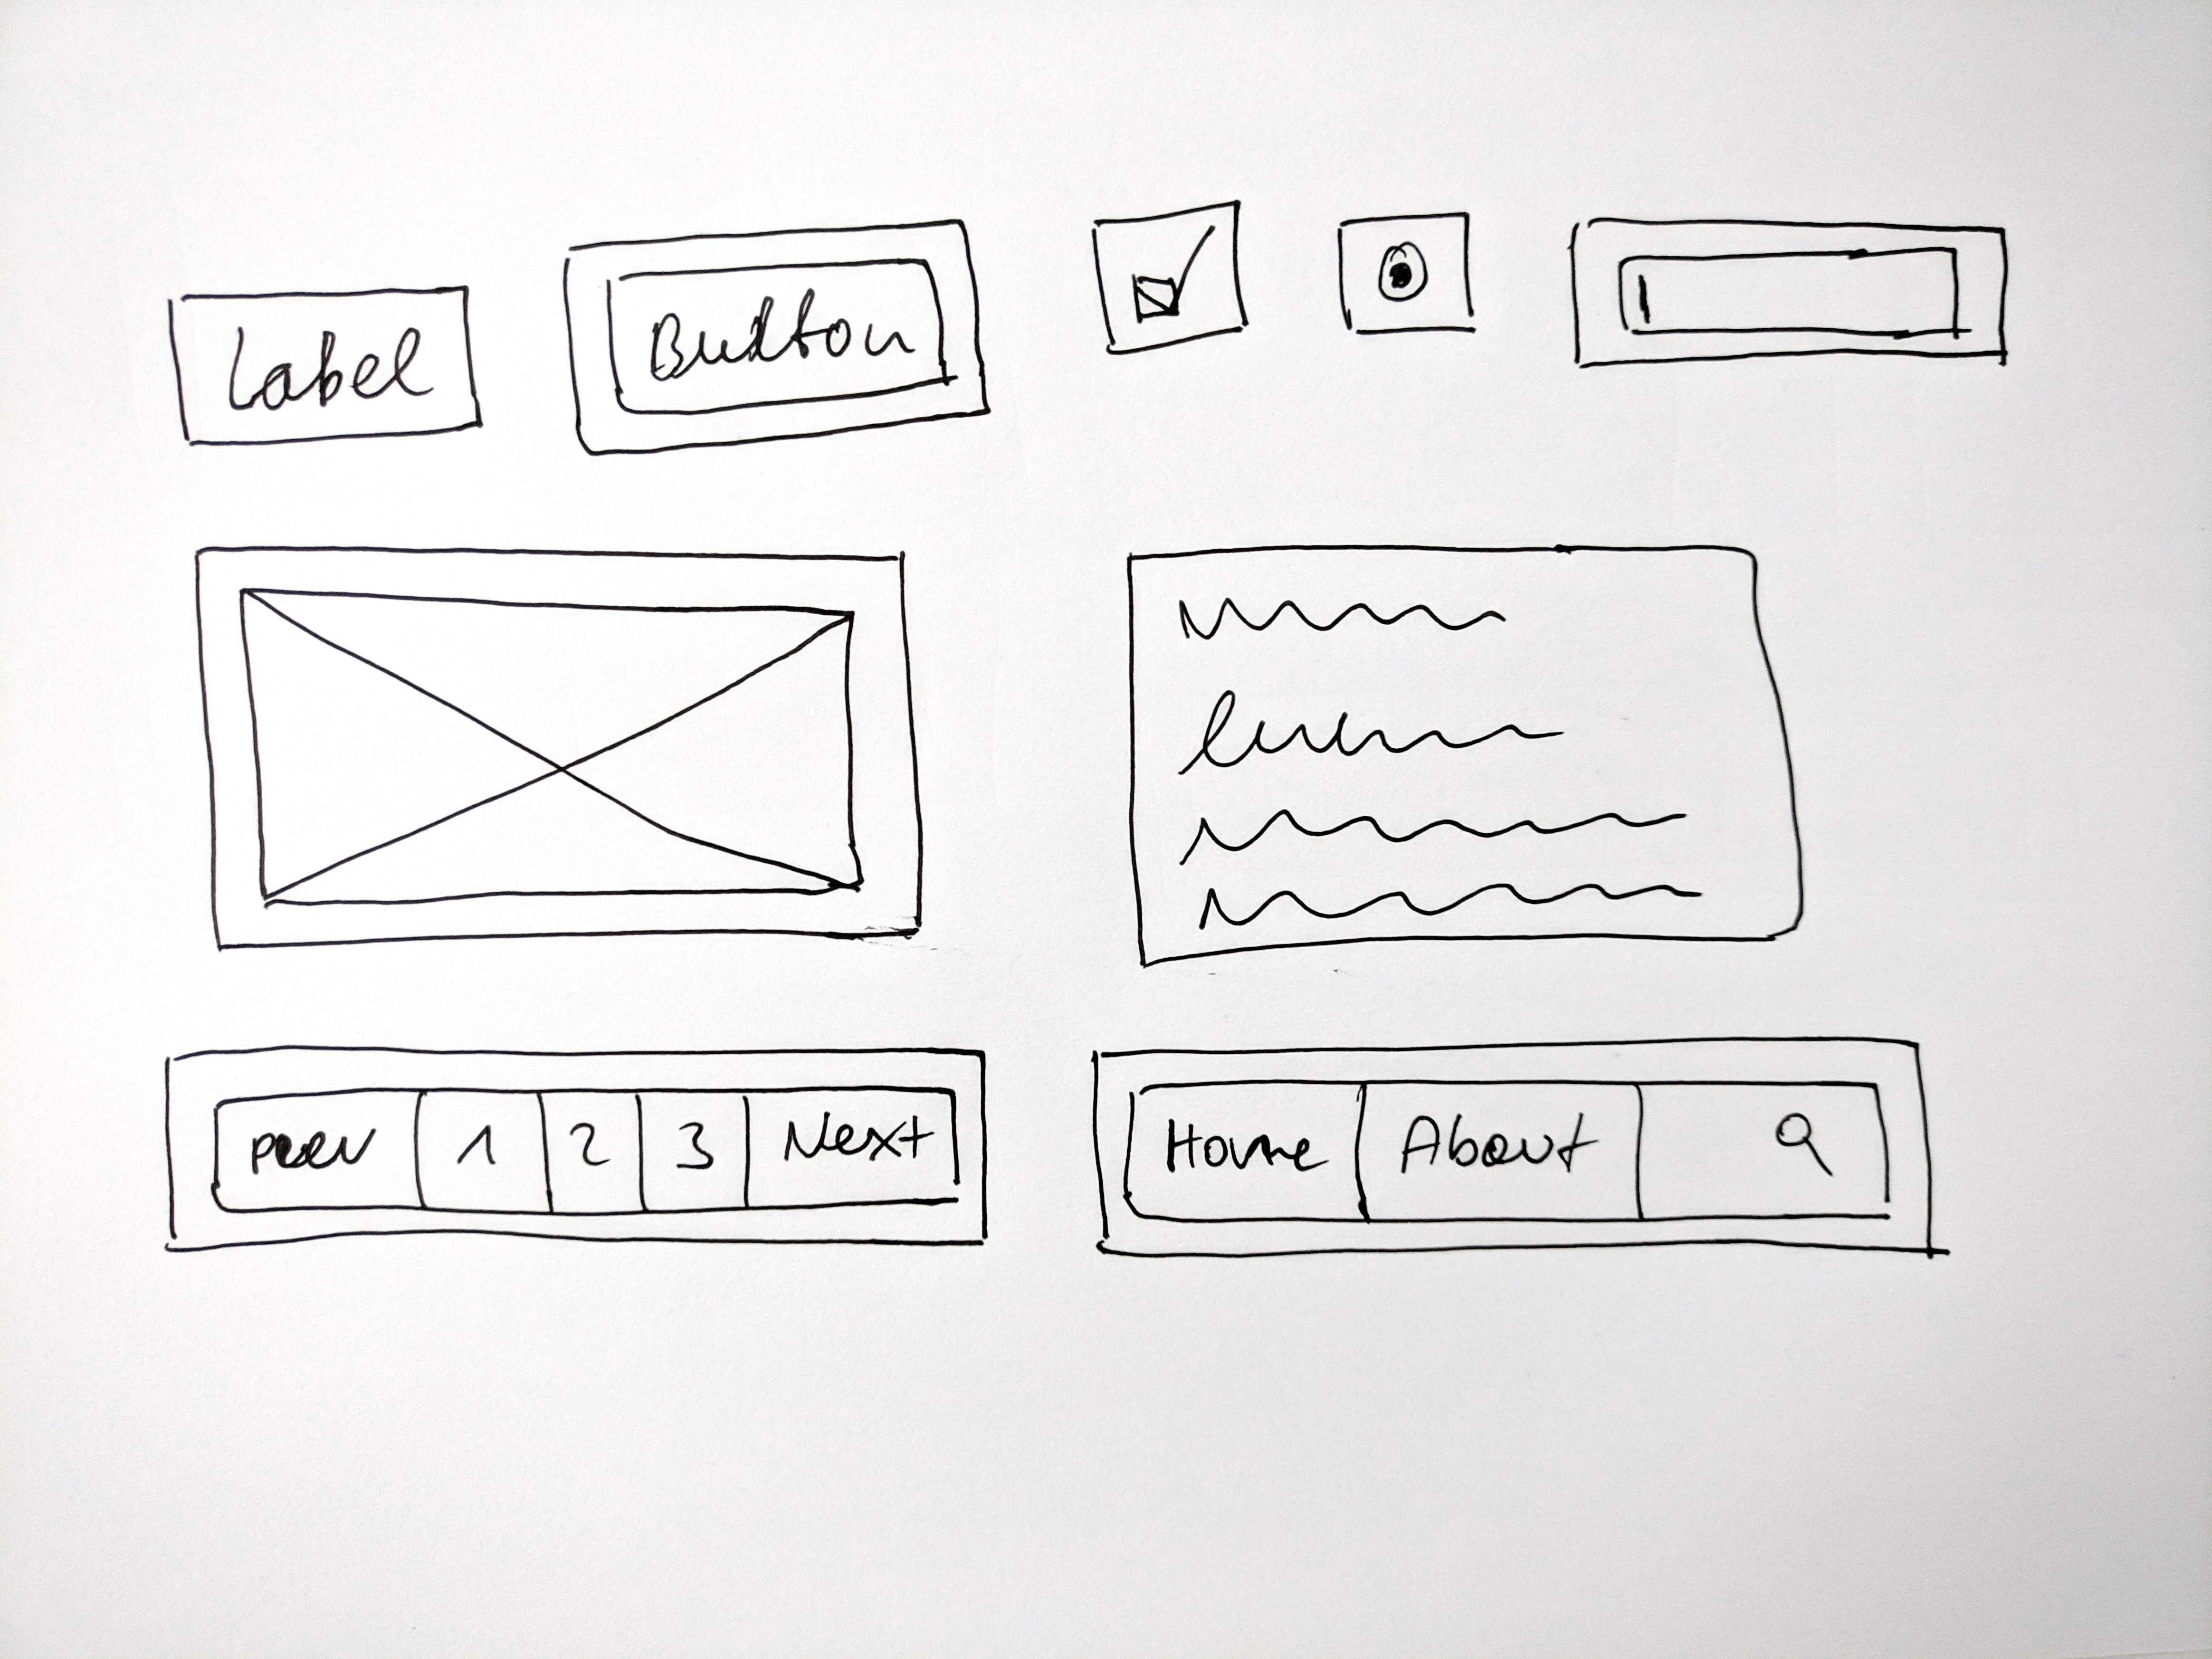 Label
Button
prev 1 2 3 Next
Home About